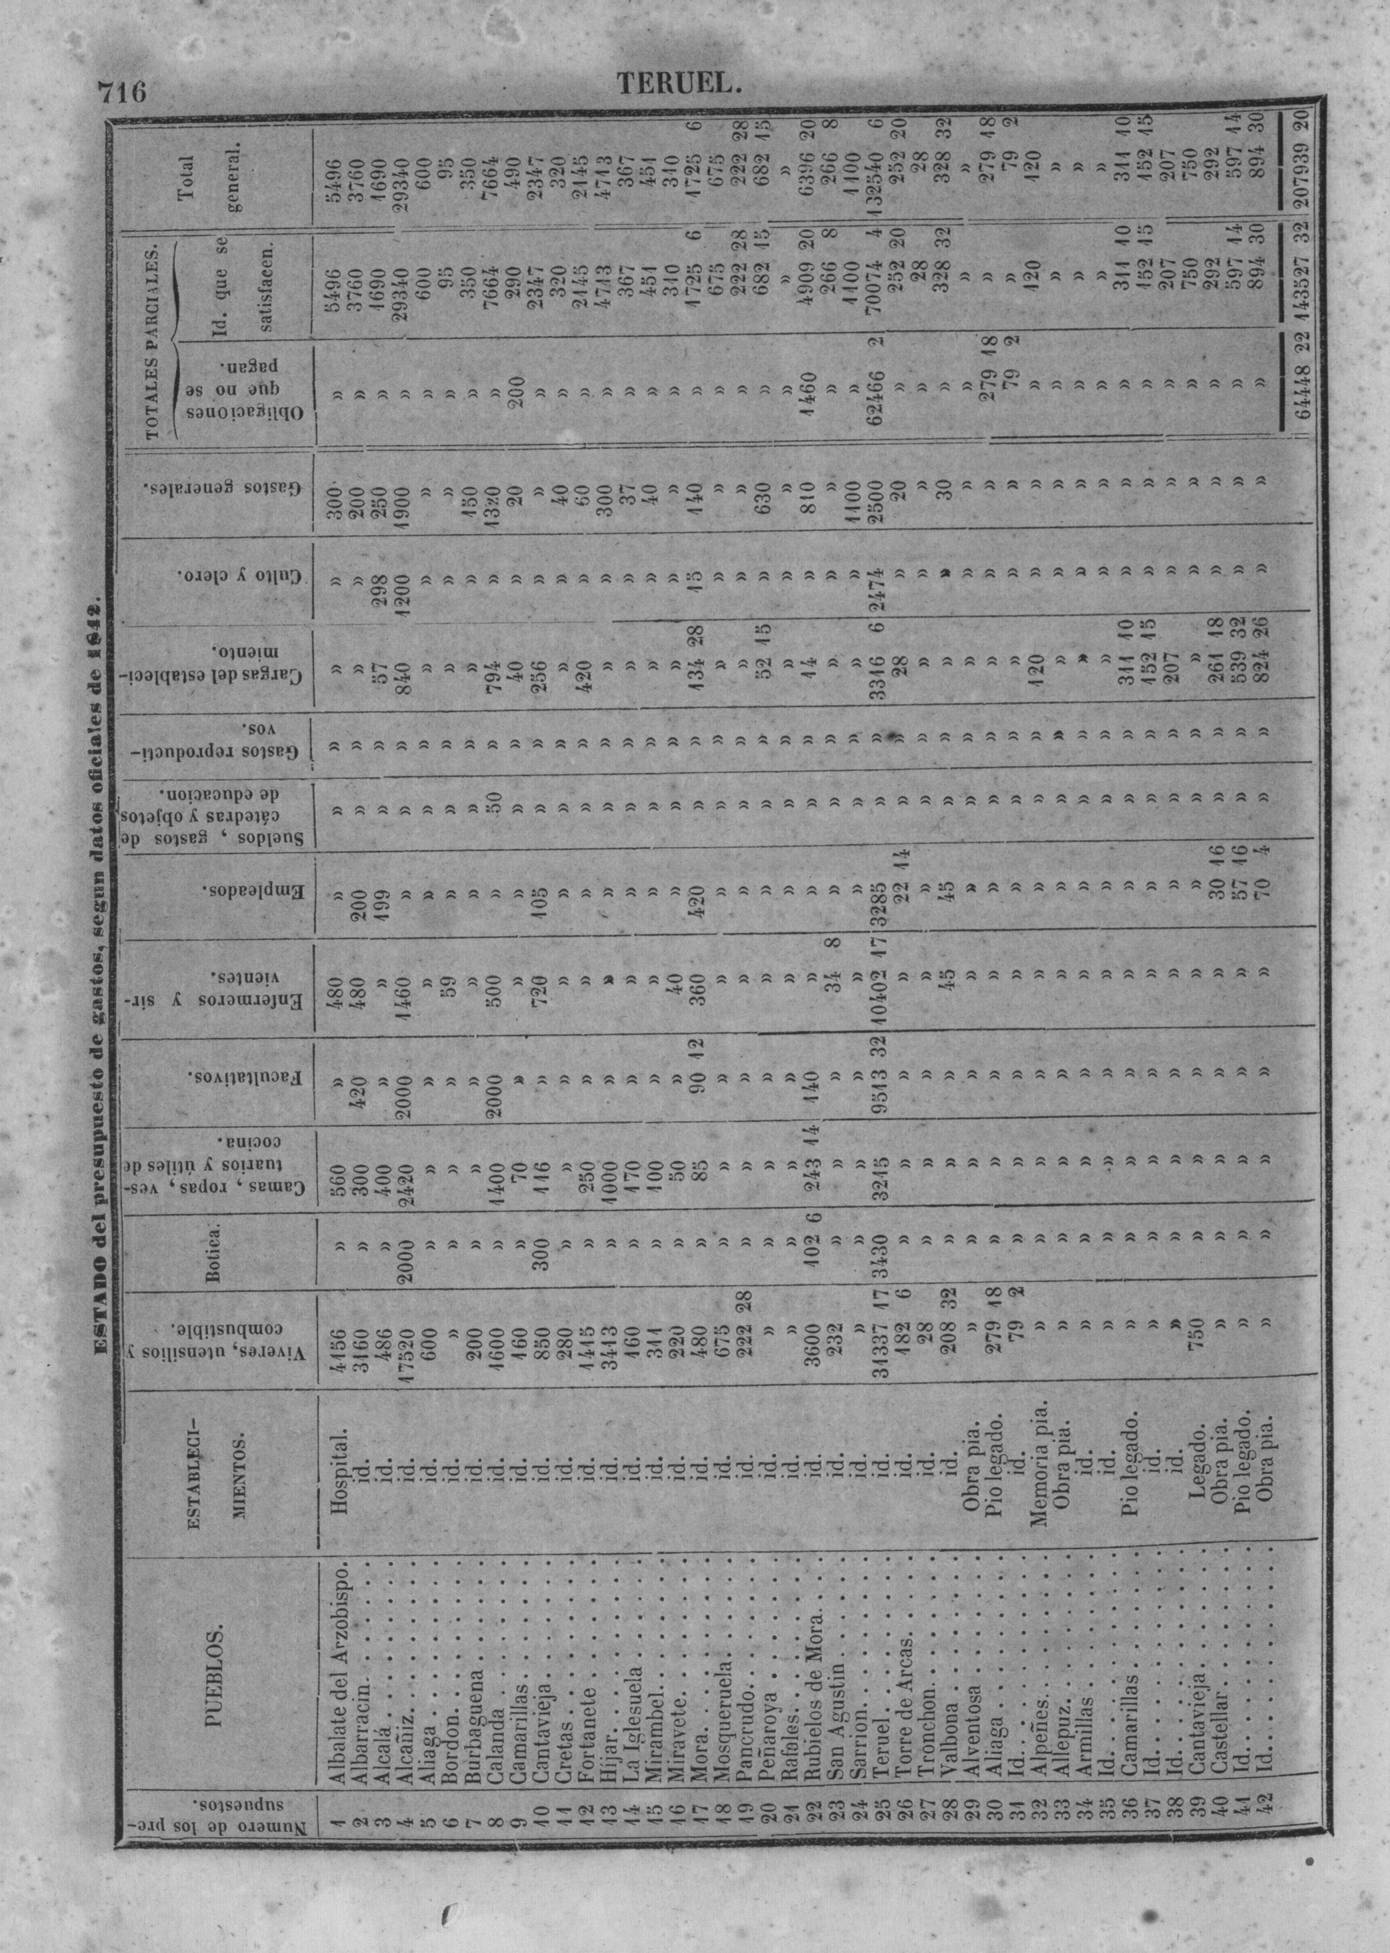 716
TERUEL.
ESTADO del presupuesto de gastos, segun datos oficiales de 1842.
Numero de los presupuestos. | PUEBLOS. | ESTABLECIMIENTOS. | Viveres, utensilios y combustible. | Botica. | Camas, ropas, vestuarios y útiles de cocina. | Facultativos. | Enfermeros y sirvientes. | Empleados. | Sueldos, gastos de cátedras y objetos de educacion. | Gastos reproductivos. | Cargas del establecimiento. | Culto y clero. | Gastos generales. | TOTALES PARCIALES. Obligaciones que no se pagan. | Id. que se satisfacen. | Total general.
1 Albalate del Arzobispo. Hospital. 4156 » 560 » 480 » » » » » 300 » 5496 5496
2 Albarracin. id. 3160 » 300 420 480 200 » » » » 200 » 3760 3760
3 Alcalá. id. 486 » 400 » » 199 » » 57 298 250 » 1690 1690
4 Alcañiz. id. 17520 2000 2420 2000 1460 » » » 840 1200 1900 » 29340 29340
5 Aliaga. id. 600 » » » » » » » » » » » 600 600
6 Bordon. id. » » » » 59 » » » » » » » 95 95
7 Burbaguena. id. 200 » » » » » » » » » 150 » 350 350
8 Calanda. id. 1600 » 1400 2000 500 » 50 » 794 » 1320 » 7664 7664
9 Camarillas. id. 160 » 70 » » » » » 40 » 20 200 290 490
10 Cantavieja. id. 850 300 116 » 720 105 » » 256 » » » 2347 2347
11 Cretas. id. 280 » » » » » » » » » 40 » 320 320
12 Fortanete. id. 1415 » 250 » » » » » 420 » 60 » 2145 2145
13 Hijar. id. 3413 » 1000 » » » » » » » 300 » 4713 4713
14 La Iglesuela. id. 160 » 170 » » » » » » » 37 » 367 367
15 Mirambel. id. 311 » 100 » » » » » » » 40 » 451 451
16 Miravete. id. 220 » 50 » 40 » » » » » » » 310 310
17 Mora. id. 480 » 85 90 12 360 420 » » 134 28 15 140 » 1725 6 1725 6
18 Mosqueruela. id. 675 » » » » » » » » » » » 675 675
19 Pancrudo. id. 222 28 » » » » » » » » » » » 222 28 222 28
20 Peñaroya. id. » » » » » » » » 52 15 » 630 » 682 15 682 15
21 Rafales. id. » » » » » » » » » » » » » »
22 Rubielos de Mora. id. 3600 102 6 243 14 140 » » » » 14 » 810 1460 4909 20 6396 20
23 San Agustin. id. 232 » » » 34 8 » » » » » » » 266 8 266 8
24 Sarrion. id. » » » » » » » » » » 1100 » 1100 1100
25 Teruel. id. 31337 17 3430 3245 9513 32 10402 17 3285 » » 3316 6 2474 2500 62466 2 70074 4 132540 6
26 Torre de Arcas. id. 182 6 » » » » 22 14 » » 28 » 20 » 252 20 252 20
27 Tronchon. id. 28 » » » » » » » » » » » 28 28
28 Valbona. id. 208 32 » » » 45 45 » » » » 30 » 328 32 328 32
29 Alventosa. Obra pia. » » » » » » » » » » » » » »
30 Aliaga. Pio legado. 279 18 » » » » » » » » » » 279 18 » 279 18
31 Id. id. 79 2 » » » » » » » » » » 79 2 » 79 2
32 Alpeñes. Memoria pia. » » » » » » » » 120 » » » 120 120
33 Allepuz. Obra pia. » » » » » » » » » » » » » »
34 Armillas. id. » » » » » » » » » » » » » »
35 Id. id. » » » » » » » » » » » » » »
36 Camarillas. Pio legado. » » » » » » » » 311 10 » » » 311 10 311 10
37 Id. id. » » » » » » » » 152 15 » » » 152 15 152 15
38 Id. id. » » » » » » » » 207 » » » 207 207
39 Cantavieja. Legado. 750 » » » » » » » » » » » 750 750
40 Castellar. Obra pia. » » » » » 30 16 » » 261 18 » » » 292 292
41 Id. Pio legado. » » » » » 57 16 » » 539 32 » » » 597 14 597 14
42 Id. Obra pia. » » » » » 70 4 » » 824 26 » » » 894 30 894 30
64448 22 143527 32 207939 20